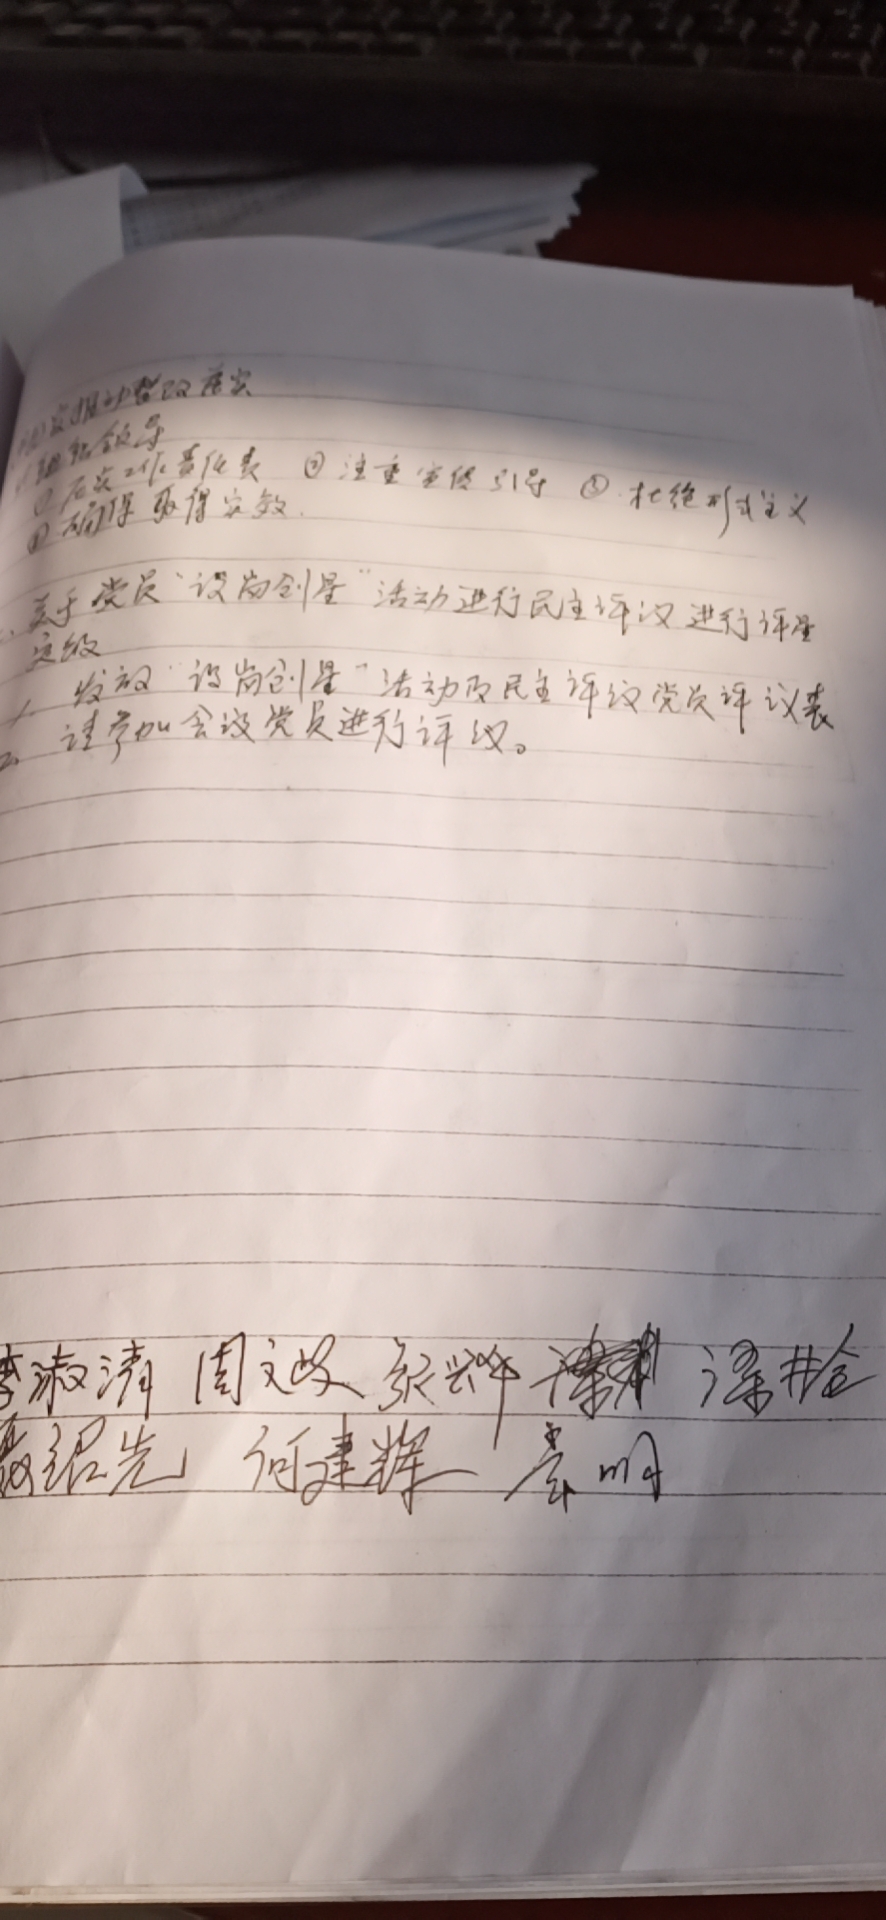 推动整改落实
组织领导
① 压实工作责任表 ② 注重宣传引导 ③ 杜绝形式主义
④ 确保取得实效.
关于党员“设岗创星”活动进行民主评议进行评星
定级
1. 发放“设岗创星”活动及民主评议党员评议表
2. 请参加会议党员进行评议。
李淑清 周文 张兴华 梁井全
聂绍先 何建辉 袁明